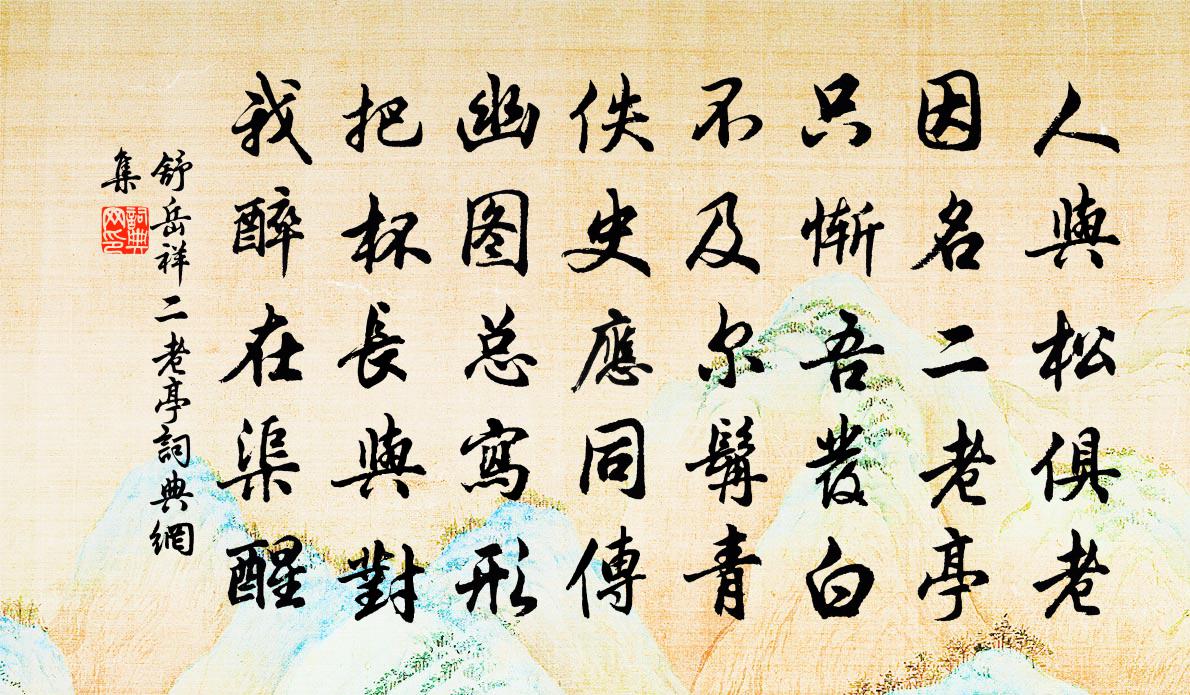 人與松俱老
因名二老亭
只惭吾發白
不及尔髯青
佚史應同傳
幽图总寫形
把杯長與對
我醉在渠醒
舒岳祥二老亭詞典網
集
詞典
网印